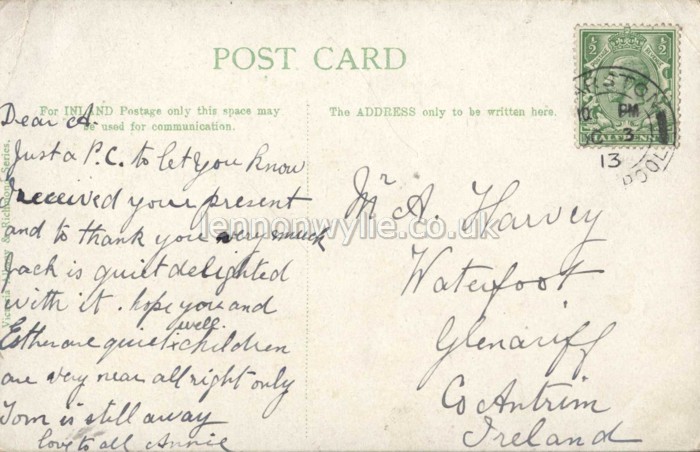 POST CARD
½ ½
For INLAND Postage only this space may
be used for communication.
The ADDRESS only to be written here.
Dear A.
Just a P.C. to let you know
I received your present
and to thank you very much
Jack is quiet delighted
with it. hope you and
Esther are quiet well. & children
are very near all right only
Tom is still away
love to all Annie
Mr A. Harvey
Waterfoot
Glenariff
Co Antrim
Ireland
PM
3
13
lennonwylie.co.uk